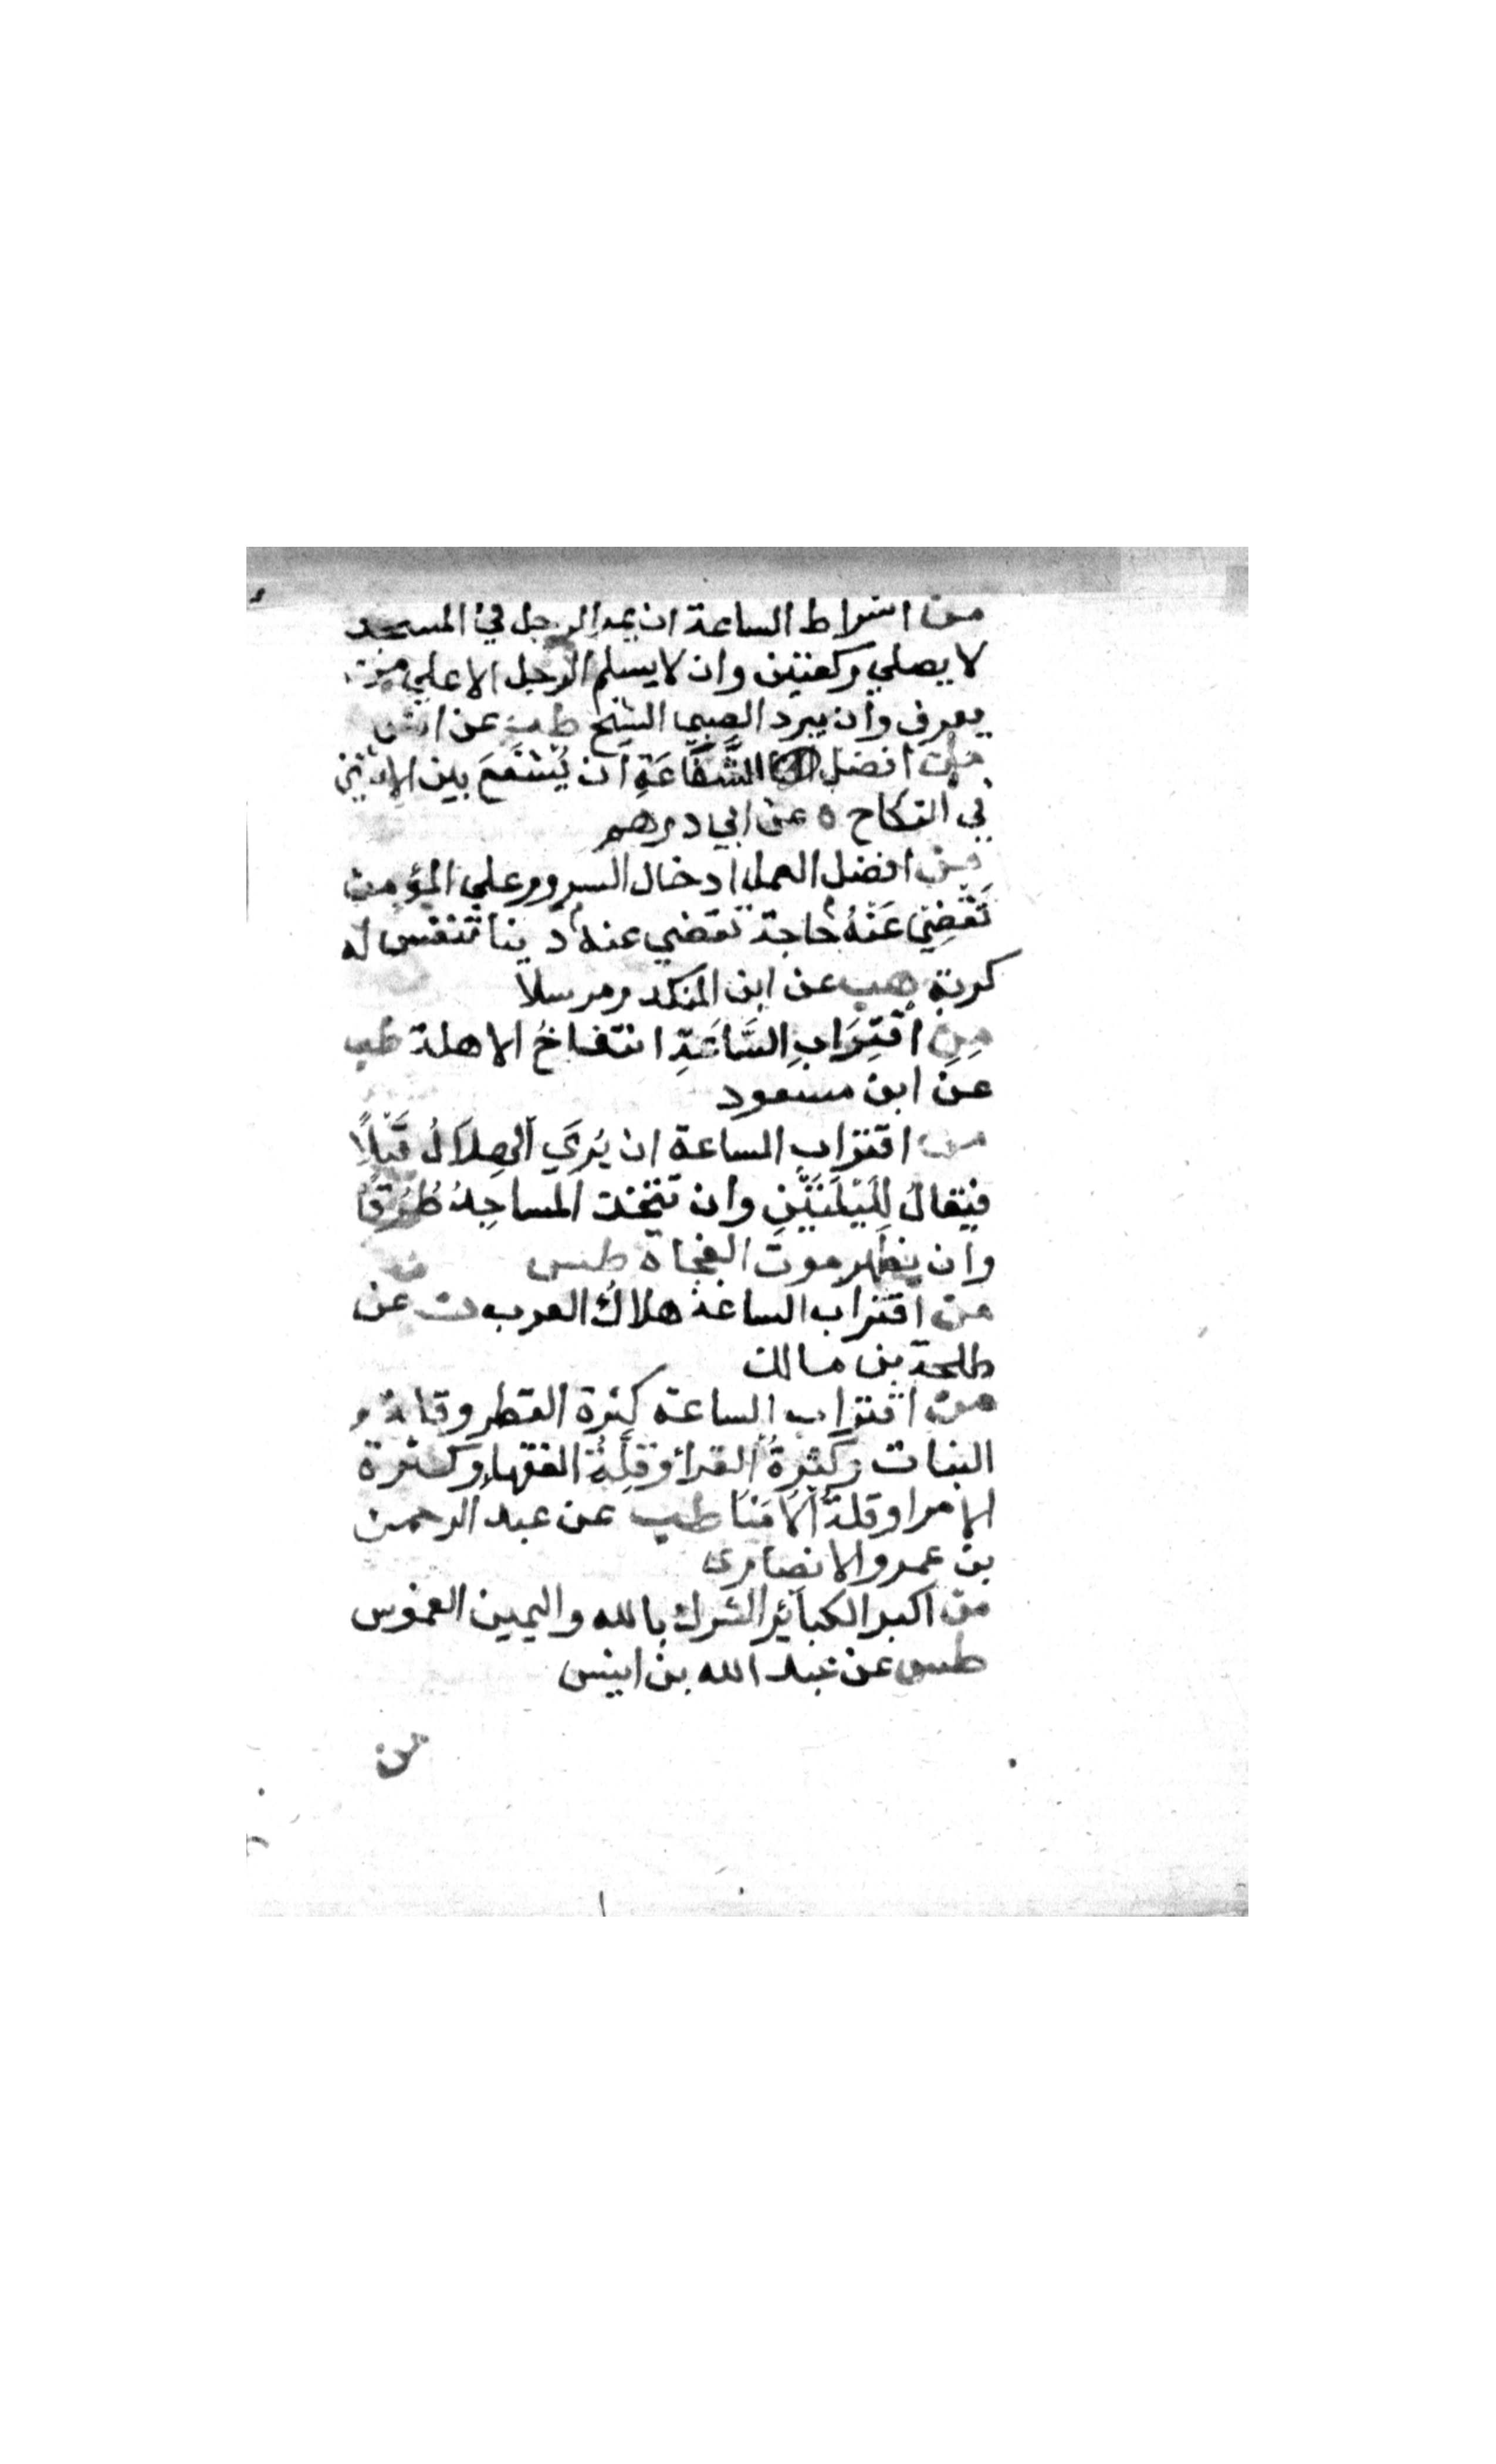 من اشراط الساعة ان يمر الرجل في المسجد
لا يصلي ركعتين وان لا يسلم الرجل الا علي من
يعرف وان يبرد الصبي الشيخ طب عن
من افضل الشَّفَاعَةِ ان يُشفَعَ بين الاثنين
في النكاح ه عن ابي درهم
من افضل العمل ادخال السرور علي المؤمن
تَقْضِي عَنْهُ حاجة تقضي عنه دينا تنفس له
كربة هب عن ابن المنكدر مرسلا
مِنِ اقْتِرَابِ السَّاعَةِ انتفاخُ الاهلة طب
عن ابن مسعود
من اقتراب الساعة ان يُرَي الهِلَالُ قَبَلًا
فيقالُ لِلَيْلَتَيْنِ وان تتخذ المساجدُ طُرُقًا
وان يظهر موت الفجاة طس
من اقتراب الساعة هلاكُ العرب ت عن
طلحة بن مالك
من اقتراب الساعة كثرة القطر وقلة
النبات وكثرةُ القرأ وقلةُ الفقهاء وكثرة
الامرا وقلةُ الاَمَنا طب عن عبد الرحمن
بن عمرو الانصارى
من اكبر الكبائر الشرك بالله واليمين الغموس
طس عن عبد الله بن انيس
من